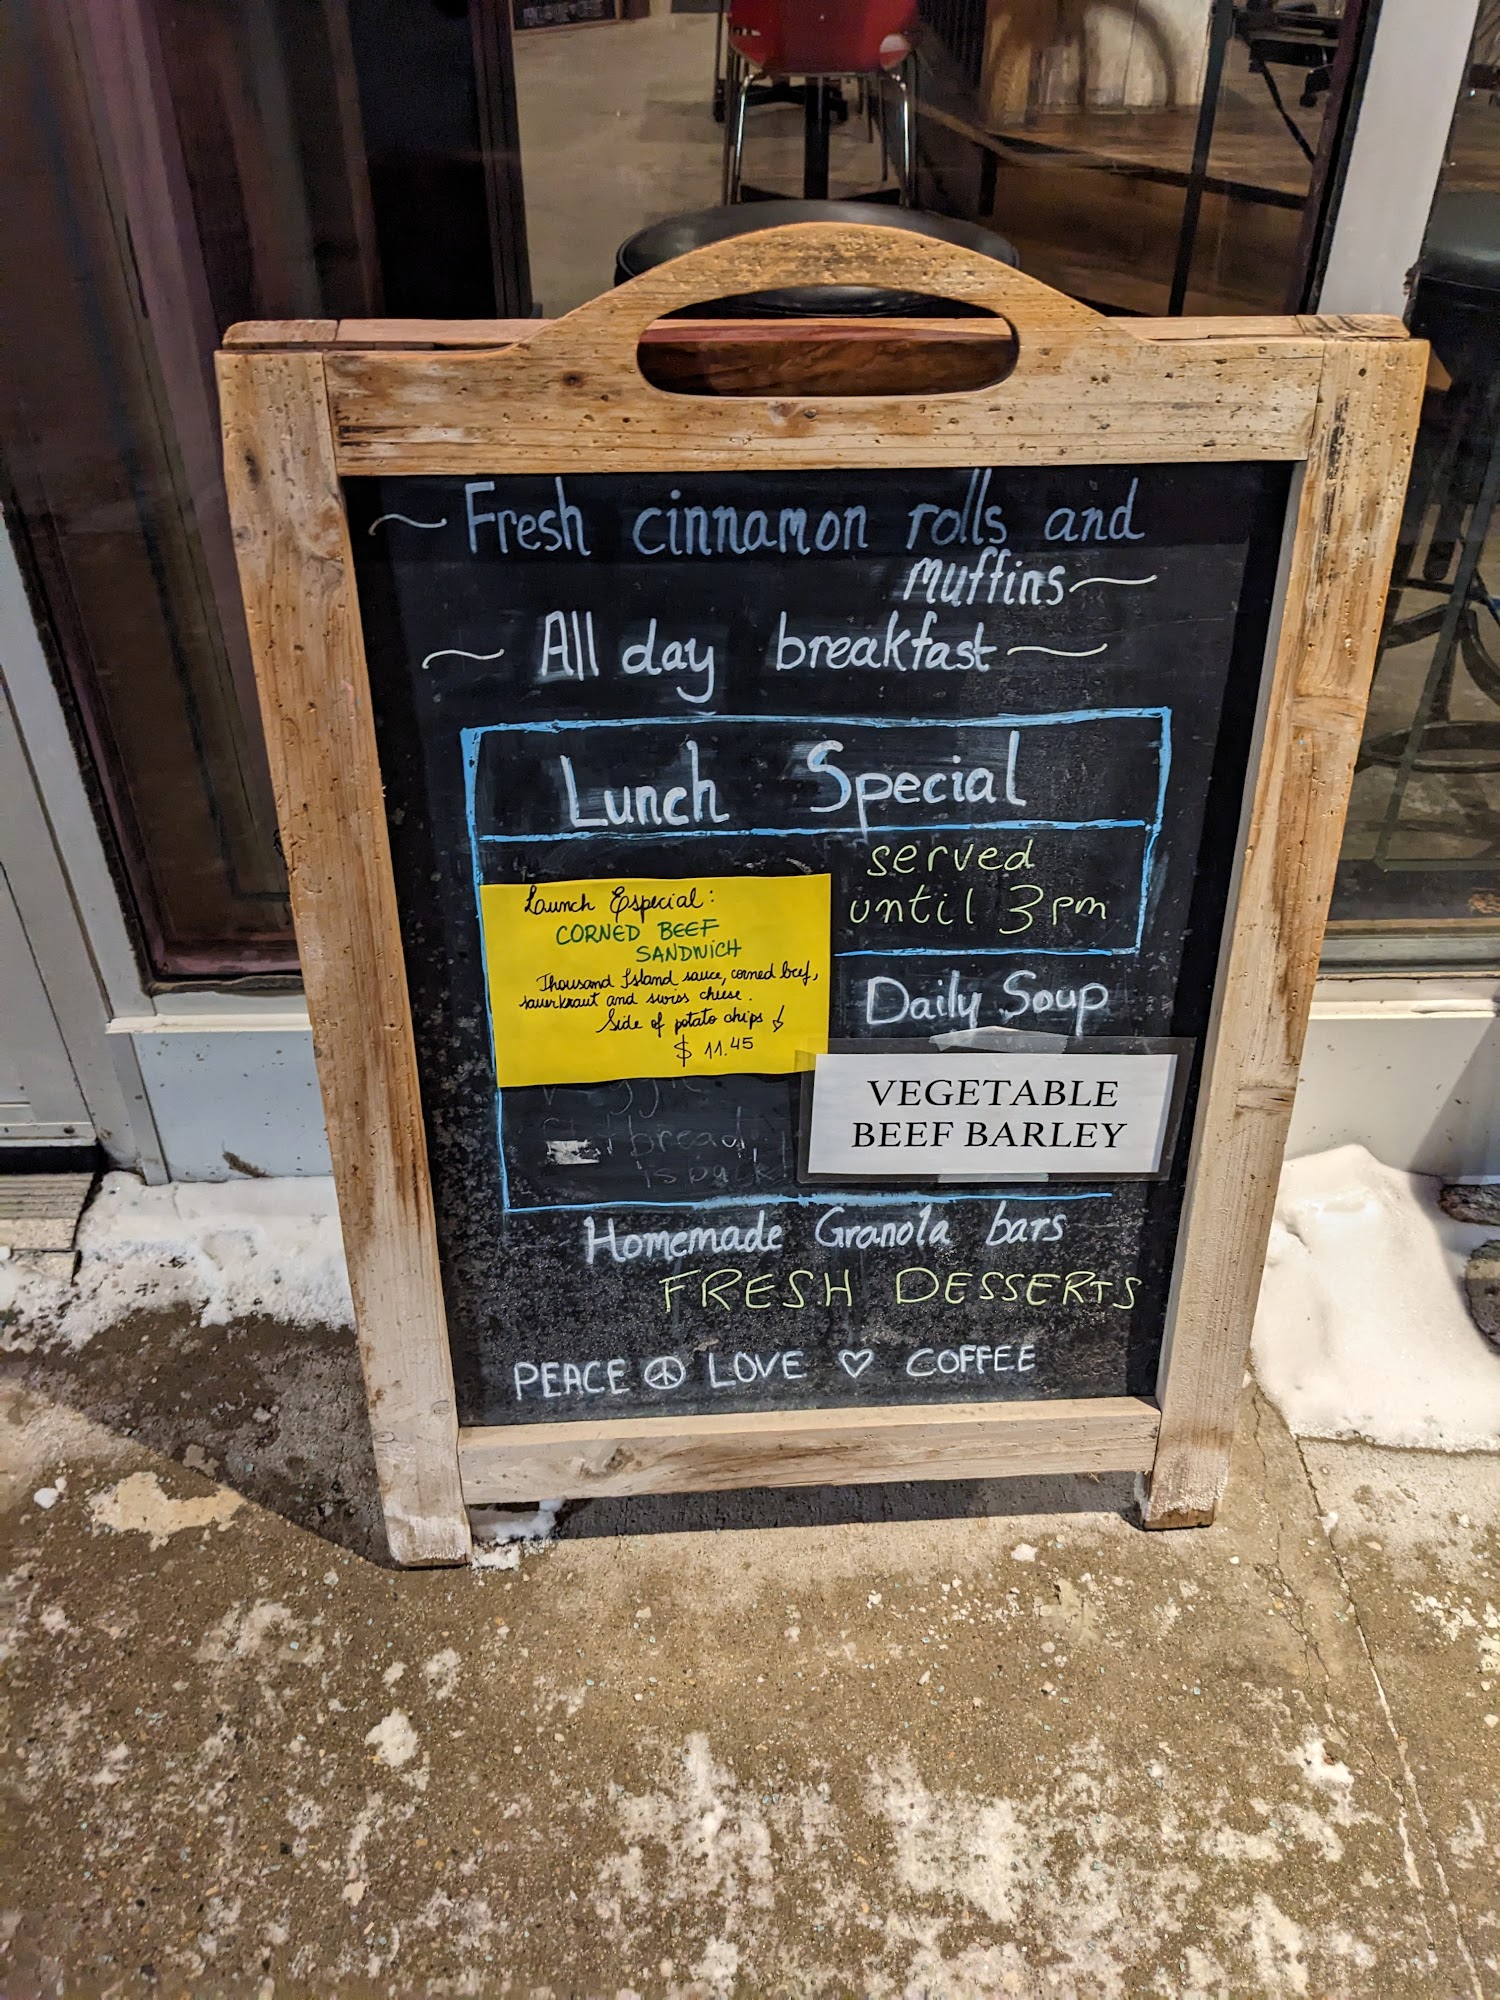 Fresh cinnamon rolls and
muffins
All day breakfast
Lunch Special
served
until 3pm
Lunch Especial:
CORNED BEEF
SANDWICH
Thousand Island sauce, corned beef,
sauerkraut and swiss cheese.
Side of potato chips
$ 11.45
Daily Soup
VEGETABLE
BEEF BARLEY
bread
is back!
Homemade Granola bars
FRESH DESSERTS
PEACE ☮ LOVE ♡ COFFEE